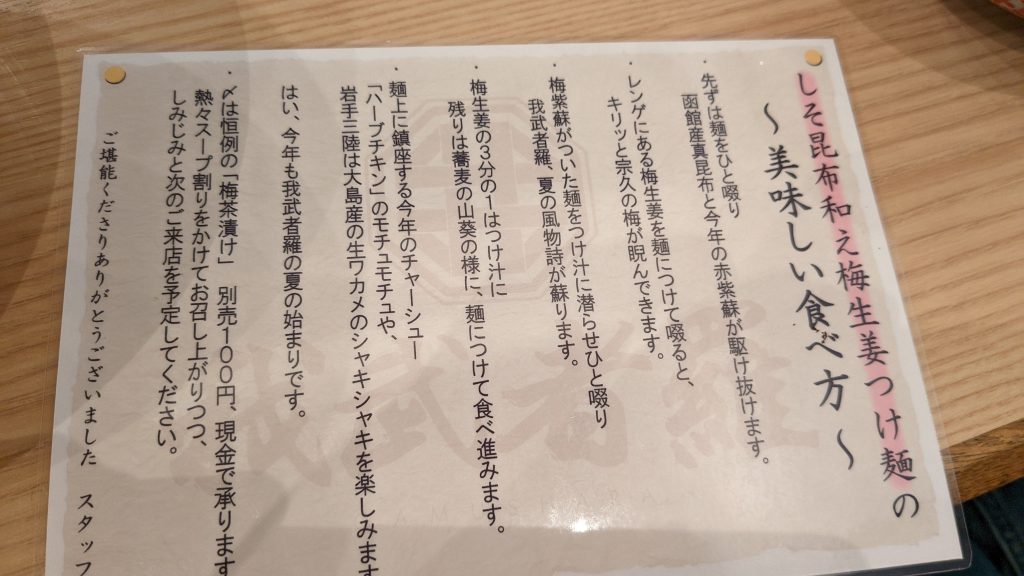 しそ昆布和え梅生姜つけ麺の
～美味しい食べ方～
・先ずは麺をひと啜り
函館産真昆布と今年の赤紫蘇が駆け抜けます。
・レンゲにある梅生姜を麺につけて啜ると、
キリッと宗久の梅が睨んできます。
・梅紫蘇がついた麺をつけ汁に潜らせひと啜り
我武者羅、夏の風物詩が蘇ります。
・梅生姜の3分の1はつけ汁に
残りは蕎麦の山葵の様に、麺につけて食べ進みます。
・麺上に鎮座する今年のチャーシュー
「ハーブチキン」のモチュモチュや、
岩手三陸は大島産の生ワカメのシャキシャキを楽しみます
はい、今年も我武者羅の夏の始まりです。
・〆は恒例の「梅茶漬け」 別売100円、現金で承ります
熱々スープ割りをかけてお召し上がりつつ、
しみじみと次のご来店を予定してください。
ご堪能くださりありがとうございました スタッフ
我武者羅